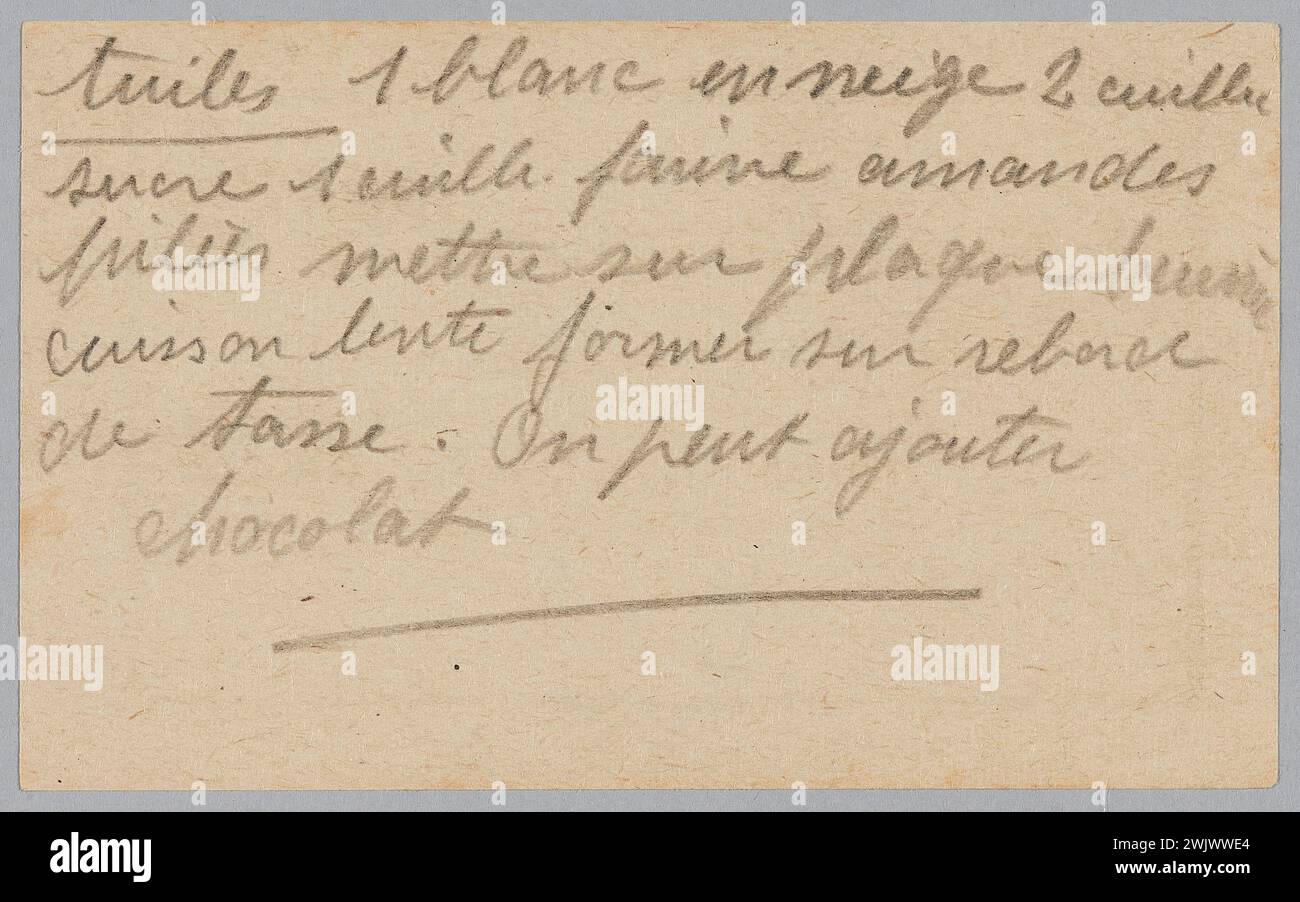 tuiles 1 blanc en neige 2 cuillère
sucre 1 cuill. farine amandes
pilées mettre sur plaque beurrée
cuisson lente former sur rebord
de tasse. On peut ajouter
chocolat
alamy
Image ID: 2WJWWE4
www.alamy.com